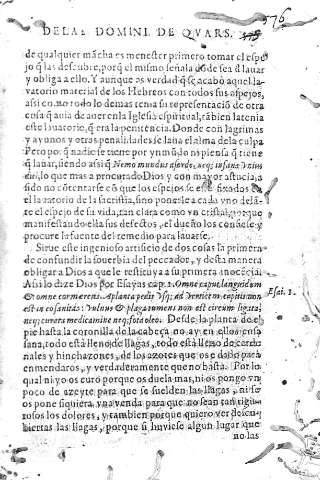 576
DE LA 2 DOMINI. DE QVARS.
de qualquier mãcha es menester primero tomar el espe
jo q̃ las descubre, porq̃ el mismo señala dõde sea d̃ lauar
y obliga a ello. Y aunque es verdad q̃ se acabò aquel la-
vatorio material de los Hebreos con todos sus aspejos,
assi co no todo lo demas tenia su representaciõ de otra
cosa q̃ auia de auer en la Iglesia espiritual, tãbien la tenia
este lauatorio, q̃ era la penitencia. Donde con lagrimas
y ayunos y otras penalidades se laua el alma de la culpa
Pero por q̃ nadie se tiene por ynmũdo ni piensa q̃ tiene
q̃ lauar, siendo assi q̃ Nemo mundus a sorde, nec infans vnius
diei, lo que mas a procurado Dios y con mayor astucia, a
sido no cõtentarse cõ que los espejos se estè fixados en
el lauatorio de la sacristia, sino ponelle a cada vno delã-
te el espejo de su vida, tan clara como vn cristal, porque
manifestando ella sus defectos, el dueño los confiese y
procure la fuente del remedio para lauarse.
Sirue este ingenioso artificio de dos cosas la primera
de confundir la souerbia del peccador, y desta manera
obligar a Dios a que le restituya a su primera inocẽcia.
Assi lo dize Dios por Esayas cap. 1. Omne caput languidum
& omne cor merens. A planta pedis vsq; ad verticem capitis non
est in eo sanitas: vulnus & plaga tumens non est circum ligata,
nec curata medicamine neq; fota oleo. Desde la planta del
pie hasta la coronilla de la cabeça no ay en ellos cosa
sana, todo està lleno de llagas, todo està lleno de carde
nales y hinchazones, de los azotes que os e dado para
enmendaros, y verdaderamente que no basta. Por lo
qual ni yo os curo porque os duela mas, ni os pongo vn
poco de azeyte para que se suelden las llagas, ni se
os pone siquiera vna venda para que no sean tan rigu-
rosos los dolores, y tambien porque quiero ver descu-
biertas las llagas, porque si huviese algun lugar que
no las
Esai. 1.